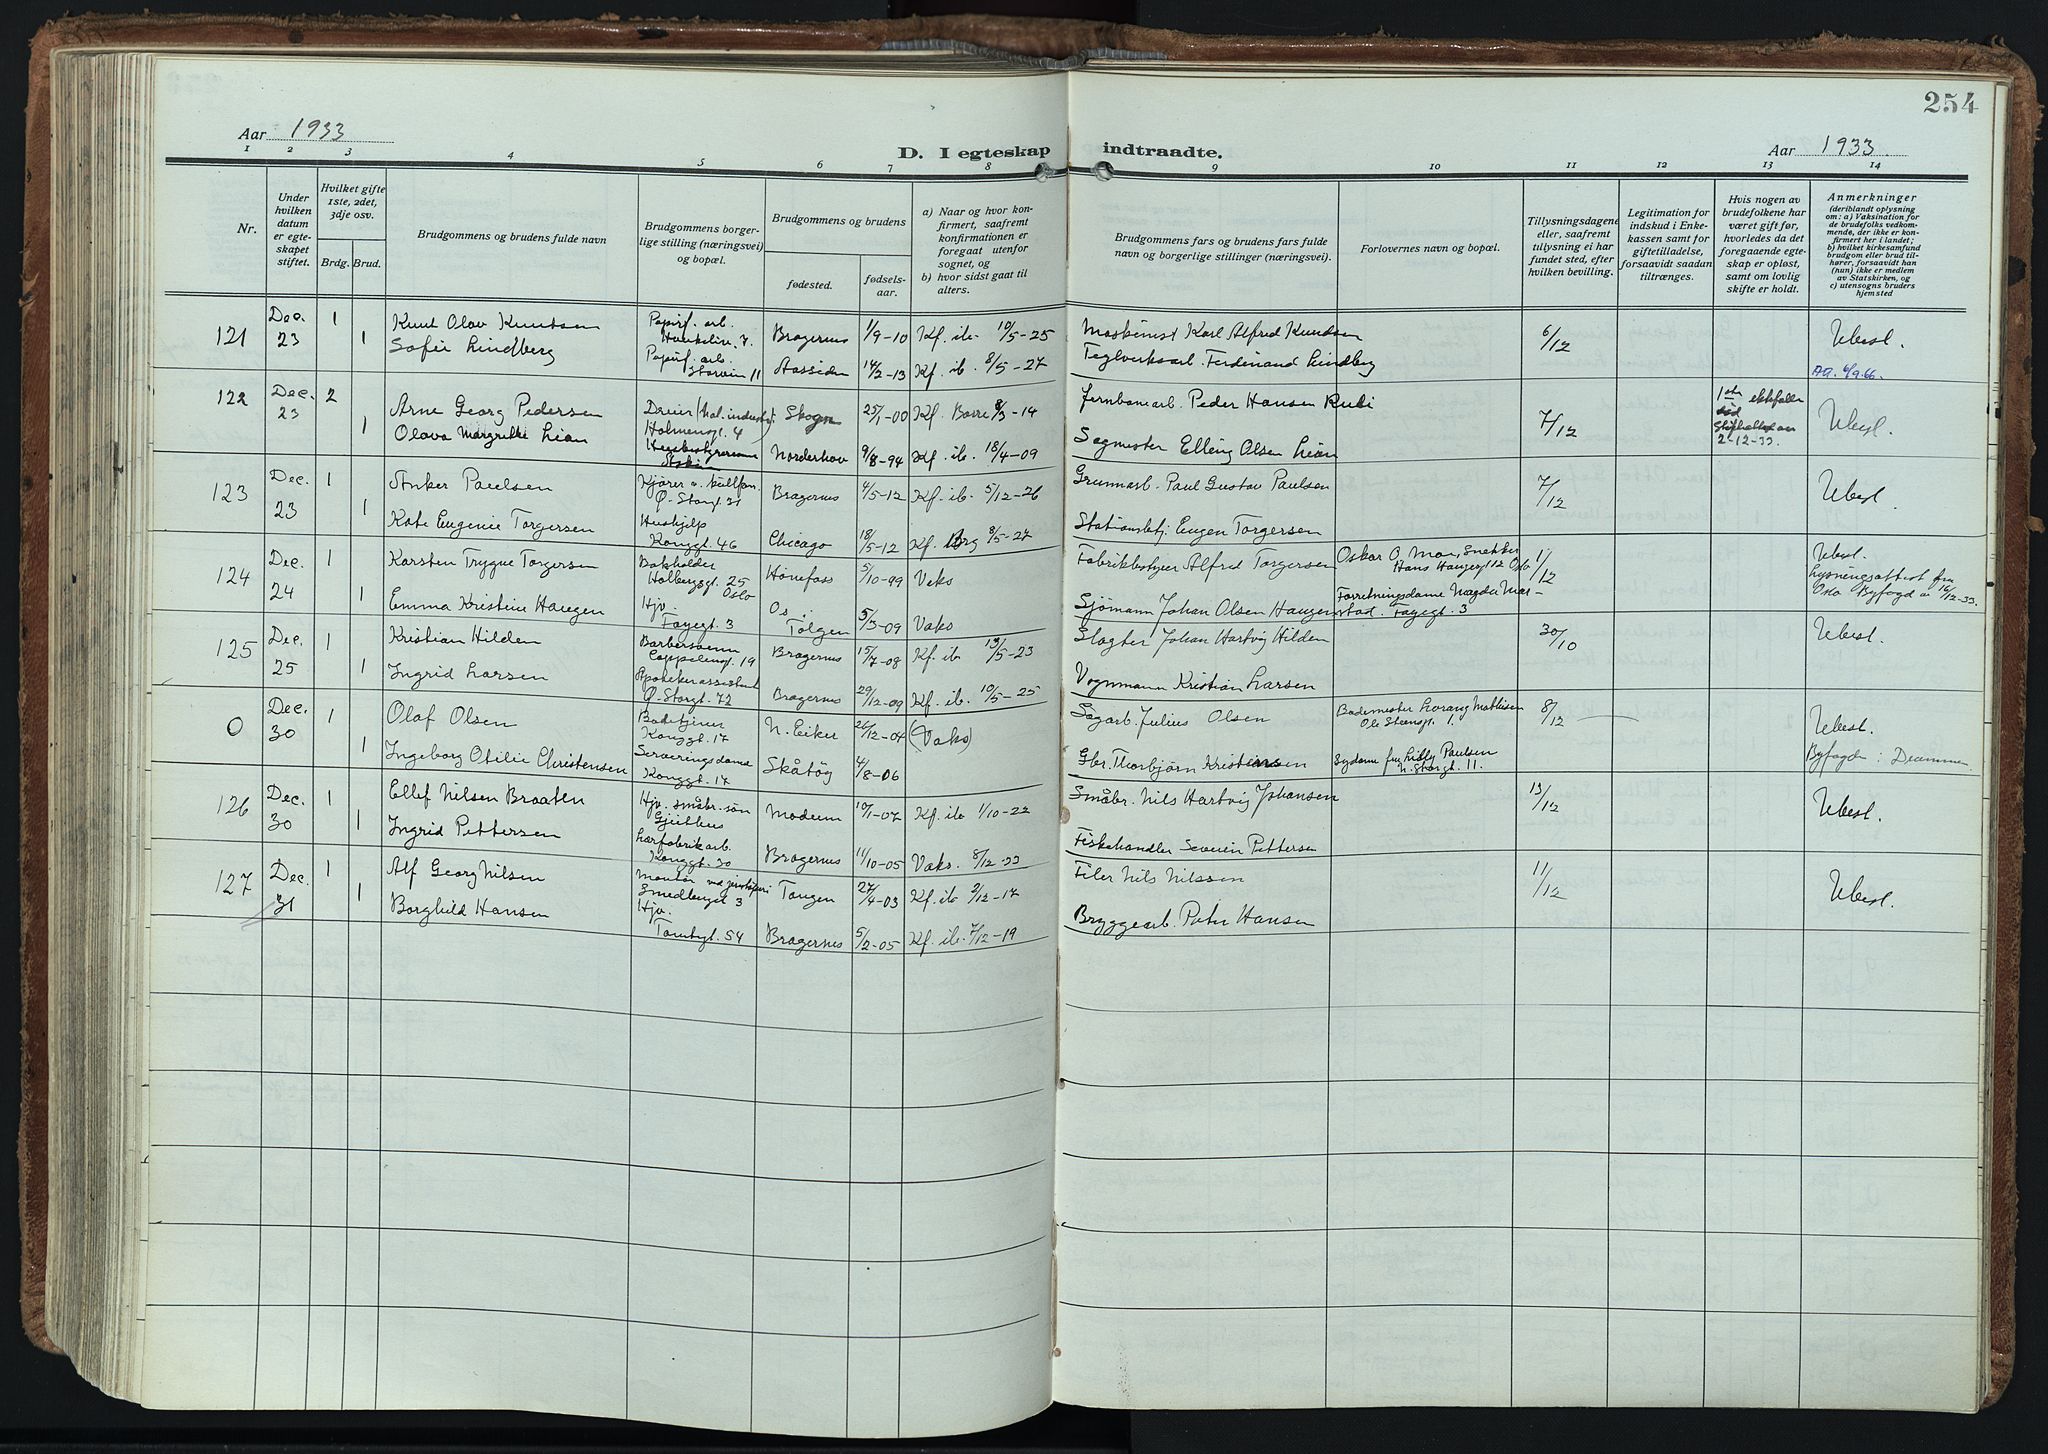 254
Aar 1933
D. I egteskap indtraadte.
Aar 1933
1 2 3 4 5 6 7 8 9 10 11 12 13 14
Nr.
Under hvilken datum er egteskapet stiftet.
Hvilket gifte 1ste, 2det, 3dje osv.
Brdg. Brud.
Brudgommens og brudens fulde navn
Brudgommens borgerlige stilling (næringsvei) og bopæl.
Brudgommens og brudens
fødested.
fødselsaar.
a) Naar og hvor konfirmert, saafremt konfirmationen er foregaat utenfor sognet, og
b) hvor sidst gaat til alters.
Brudgommens fars og brudens fars fulde navn og borgerlige stillinger (næringsvei).
Forlovernes navn og bopæl.
Tillysningsdagene eller, saafremt tillysning ei har fundet sted, efter hvilken bevilling.
Legitimation for indskud i Enkekassen samt for giftetilladelse, forsaavidt saadan tiltrænges.
Hvis nogen av brudefolkene har været gift før, hvorledes da det foregaaende egteskap er opløst, samt om lovlig skifte er holdt.
Anmerkninger
(deriblandt oplysning om: a) Vaksination for de brudefolks vedkommende, der ikke er konfirmert her i landet; b) hvilket kirkesamfund brudgom eller brud tilhører, forsaavidt han (hun) ikke er medlem av Statskirken, og c) utensogns bruders hjemsted
121 Dec. 23 1 Knut Olav Knutsen Papirf. arb. Bragernes 1/9-10 Kf. ib. 10/5-25 Maskinist Karl Alfred Knudsen 6/12 Ubesl.
1 Sofie Lindberg Papirf. arb. Aassiden 14/2-13 Kf. ib. 8/5-27 Teglverksarb. Ferdinand Lindberg
122 Dec. 23 2 Arne Georg Pedersen Dreier Holmensgt. 4 Skogn 25/1-00 Kf. Borre 8/3-14 Jernbanearb. Peder Hansen Rubi 7/12 2-12-33 Ubesl.
1 Olava Margrethe Lien Norderhov 9/8-94 Kf. ib. 18/4-09 Sagmester Elling Olsen Lien
123 Dec. 23 1 Anker Paulsen Kjører Ø. Storgt. 31 Bragernes 4/5-12 Kf. ib. 5/12-26 Grunnarb. Paul Gustav Paulsen 7/12 Ubesl.
1 Kate Eugenie Torgersen Hushjelp Konggt. 46 Chicago 18/5-12 Kf. Brg 8/5-27 Stationsbetj. Eugen Torgersen
124 Dec. 24 1 Karsten Trygve Torgersen Bokholder Holbergsgt. 25 Oslo Hønefoss 5/10-99 Vaks Fabrikkbestyrer Alfred Torgersen Oskar O. Moe, Snekker Hans Haugesgt 12 Oslo 1/12 Ubesl. Lysningsattest fra Oslo Byfogd av 16/12-33.
1 Emma Kristine Haugen Hjv. Fayegt. 3 Os i Tolgen 5/3-09 Vaks Sjømann Johan Olsen Haugen Forretningsdame Magda Morstad. Fayegt. 3
125 Dec. 25 1 Kristian Hilden Barbersvenn Cappelensgt. 19 Bragernes 15/7-08 Kf. ib 13/5-23 Slagter Johan Hartvig Hilden 30/10 Ubesl.
1 Ingrid Larsen Apotekerassistent Ø. Storgt. 72 Bragernes 29/12-09 Kf. ib. 10/5-25 Vognmann Kristian Larsen
0 Dec. 30 1 Olaf Olsen Badetjener Konggt. 17 N. Eiker 26/12-04 (Vaks) Sagarb. Julius Olsen Bademester Lorang Mathisen Ole Steensgt. 1. 8/12 Ubesl.
1 Ingeborg Otilie Christensen Serveringsdame Konggt. 17 Skåtøy 4/8-06 Gbr. Thorbjørn Kristensen Sydame frk Lilly Paulsen N. Storgt. 11. Byfogden i Drammen
126 Dec. 30 1 Ellef Nilsen Braaten Hjv. småbr. søn Geithus Modum 10/1-07 Kf. ib 1/10-22 Småbr. Nils Hartvig Johansen 13/12 Ubesl.
1 Ingrid Pettersen Lærfabrikarb. Konggt. 30 Bragernes 11/10-05 Vaks. 8/12-33 Fiskehandler Severin Pettersen
127 Dec. 31 1 Alf Georg Nilsen Montør ved Smedbergst 3 Tangen 27/4-03 Kf. ib 2/12-17 Filer Nils Nilssen 11/12 Ubesl.
1 Borghild Hansen Hjv. Tomtegt. 54 Bragernes 5/2-05 Kf. ib. 7/12-19 Bryggearb. Peter Hansen